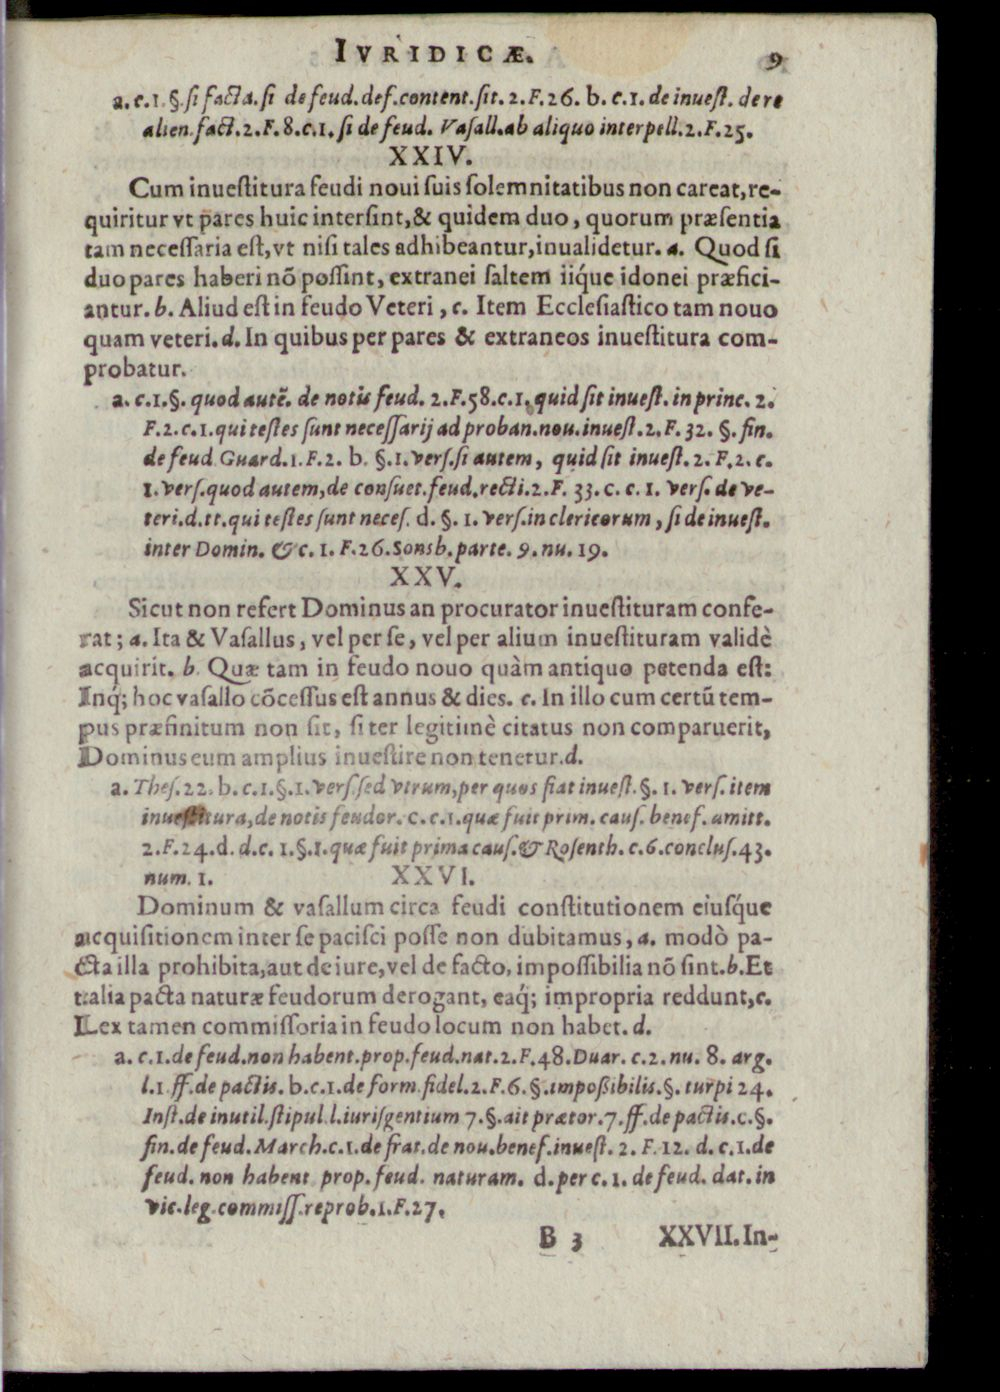 IVRIDICÆ. 9
a. c.1.§.si facta.si de feud.def.content.sit.2.F.26. b. c.1. de inuest. de re
alien.fact.2.F.8.c.1. si de feud. Vasall.ab aliquo interpell.2.F.25.
XXIV.
Cum inuestitura feudi noui suis solemnitatibus non careat, re-
quiritur vt pares huic intersint, & quidem duo, quorum præsentia
tam necessaria est, vt nisi tales adhibeantur, inualidetur. a. Quod si
duo pares haberi nõ possint, extranei saltem iiq́ue idonei præfici-
antur. b. Aliud est in feudo Veteri, c. Item Ecclesiastico tam nouo
quam veteri. d. In quibus per pares & extraneos inuestitura com-
probatur.
a. c.1.§. quod autẽ. de notis feud. 2.F.58.c.1. quid sit inuest. in princ. 2.
F.2.c.1.qui testes sunt necessarij ad proban.nou.inuest.2.F.32. §. fin.
de feud Guard.1.F.2. b. §.1.vers.si autem, quid sit inuest. 2. F.2. c.
1.vers.quod autem, de consuet.feud.recti.2.F. 33. c. c. 1. vers. de ve-
teri.d.tt.qui testes sunt neces. d. §. 1. vers.in clericorum, si de inuest.
inter Domin. & c. 1. F.26.Sonsb.parte. 9. nu. 19.
XXV.
Sicut non refert Dominus an procurator inuestituram confe-
rat; a. Ita & Vasallus, vel per se, vel per alium inuestituram validè
acquirit. b. Quæ tam in feudo nouo quàm antiquo petenda est:
Inq́; hoc vasallo cõcessus est annus & dies. c. In illo cum certũ tem-
pus præfinitum non sit, si ter legitimè citatus non comparuerit,
Dominus eum amplius inuestire non tenetur. d.
a. Thes.22. b. c.1.§.1.vers.sed vtrum, per quos fiat inuest. §. 1. vers. item
inuestitura, de notis feudor. c. c.1.quæ fuit prim. caus. benef. amitt.
2.F.24.d. d.c. 1.§.1.quæ fuit prima caus. & Rosenth. c.6.conclus.43.
num. 1. XXVI.
Dominum & vasallum circa feudi constitutionem eiusq́ue
acquisitionem inter se pacisci posse non dubitamus, a. modò pa-
cta illa prohibita, aut de iure, vel de facto, impossibilia nõ sint. b. Et
talia pacta naturæ feudorum derogant, eaq́; impropria reddunt, c.
Lex tamen commissoria in feudo locum non habet. d.
a. c.1.de feud.non habent.prop.feud.nat.2.F.48.Duar. c.2. nu. 8. arg.
l.1 ff.de pactis. b.c.1.de form.fidel.2.F.6.§.impoßibilis.§. turpi 24.
Inst.de inutil.stipul l.iurisgentium 7.§.ait prætor.7.ff.de pactis.c.§.
fin.de feud.March.c.1.de frat.de nou.benef.inuest. 2. F.12. d. c.1.de
feud. non habent prop. feud. naturam. d. per c. 1. de feud. dat. in
vic.leg.commiss.reprob.1.F.27.
B 3 XXVII. In-